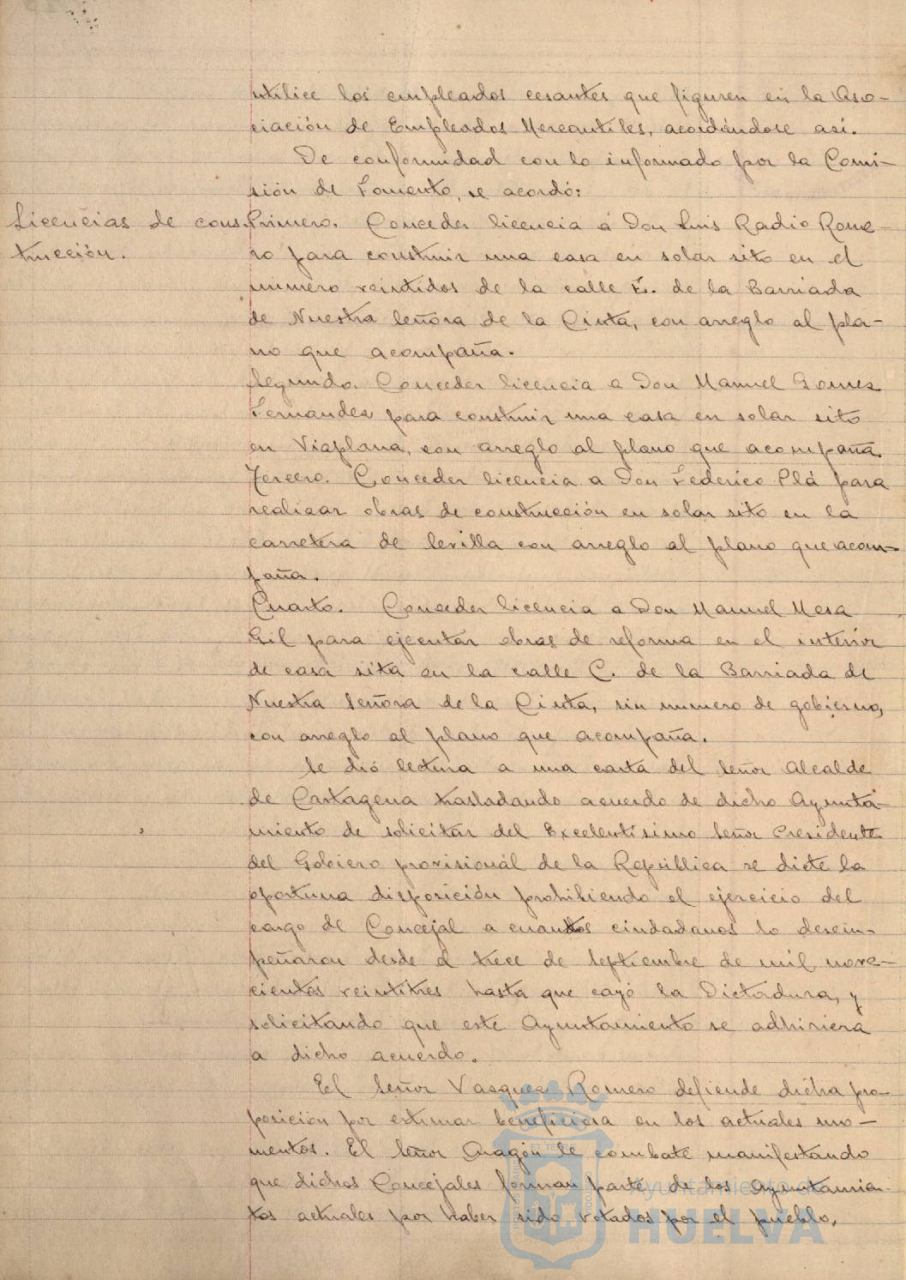 utilice los empleados cesantes que figuren en la Aso-
ciación de Empleados Mercantiles, acordándose así.
De conformidad con lo informado por la Comi-
sión de Fomento, se acordó:
Licencias de cons-
trucción.
Primero. Conceder licencia á Don Luis Radio Rome-
ro para construir una casa en solar sito en el
número veintidos de la calle E. de la Barriada
de Nuestra Señora de la Cinta, con arreglo al pla-
no que acompaña.
Segundo. Conceder licencia a Don Manuel Gomez
Fernandez para construir una casa en solar sito
en Viaplana, con arreglo al plano que acompaña.
Tercero. Conceder licencia a Don Federico Plá para
realizar obras de construcción en solar sito en la
carretera de Sevilla con arreglo al plano que acom-
paña.
Cuarto. Conceder licencia a Don Manuel Mesa
Gil para ejecutar obras de reforma en el interior
de casa sita en la calle C. de la Barriada de
Nuestra Señora de la Cinta, sin numero de gobierno,
con arreglo al plano que acompaña.
Se dió lectura a una carta del Señor Alcalde
de Cartagena trasladando acuerdo de dicho Ayunta-
miento de solicitar del Excelentísimo Señor Presidente
del Gobiero provisional de la República se dicte la
oportuna disposición prohibiendo el ejercicio del
cargo de Concejal a cuantos ciudadanos lo desem-
peñaron desde el trece de Septiembre de mil nove-
cientos veintitres hasta que cayó la Dictadura, y
solicitando que este Ayuntamiento se adhiriera
a dicho acuerdo.
El Señor Vasquez Romero defiende dicha pro-
posición por estimar beneficiosa en los actuales mo-
mentos. El Señor Aragón le combate manifestando
que dichos Concejales forman parte de los Ayuntamien-
tos actuales por haber sido votados por el pueblo.
Ayuntamiento de
HUELVA